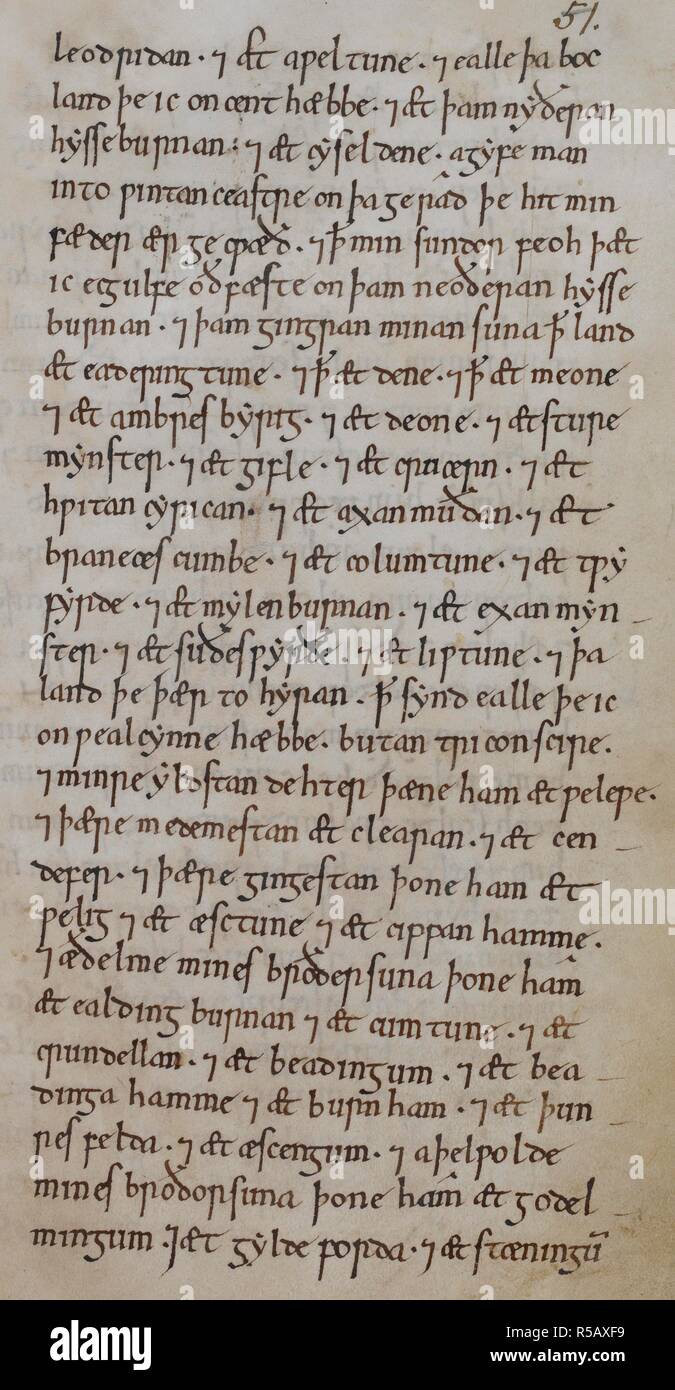 51.
leodridan · ⁊ æt apeltune · ⁊ ealle þa boc
land þe ic on cent hæbbe · ⁊ æt þam nẏðeran
hẏsseburnan : ⁊ æt cẏseldene · agẏfe man
into ƿintanceastre on þa gerád þe hit min
fæder ær gecƿæð · ⁊ ꝥ min sundor feoh þæt
ic ecgulfe oðfæste on þam neoðeran hẏsse
burnan · ⁊ þam gingran minan suna ꝥ land
æt eaderingtune · ⁊ ꝥ æt dene · ⁊ ꝥ æt meone
⁊ æt ambresbẏrig · ⁊ æt deone · ⁊ æt sture
mẏnster · ⁊ æt gifle · ⁊ æt crucern · ⁊ æt
hƿitancẏrican · ⁊ æt axanmuðan · ⁊ æt
branecescumbe · ⁊ æt columtune · ⁊ æt tƿẏ
fẏrde · ⁊ æt mẏlenburnan · ⁊ æt exanmẏn
ster · ⁊ æt suðesƿẏrðe · ⁊ æt liƿtune · ⁊ þa
land þe þær to hẏran · ꝥ sẏnd ealle þe ic
on ƿealcẏnne hæbbe · butan triconscire ·
⁊ minre ẏldstan dehter þæne ham æt ƿeleƿe ·
⁊ þære medemestan æt clearan · ⁊ æt cen
defer · ⁊ þære gingestan þone ham æt
ƿelig ⁊ æt æsctune ⁊ æt cippanhamme ·
⁊ æðelme mines broðer suna þone hā
æt ealdingburnan ⁊ æt cumtune · ⁊ æt
crundellan · ⁊ æt beadingum · ⁊ æt bea
dingahamme ⁊ æt burnham · ⁊ æt þun
resfelda · ⁊ æt æscengum · ⁊ aþelƿolde
mines broðor suna þone hā æt godel
mingum · ⁊ æt gẏldeforda · ⁊ æt stæningū
alamy
Image ID: R5AXF9
www.alamy.com